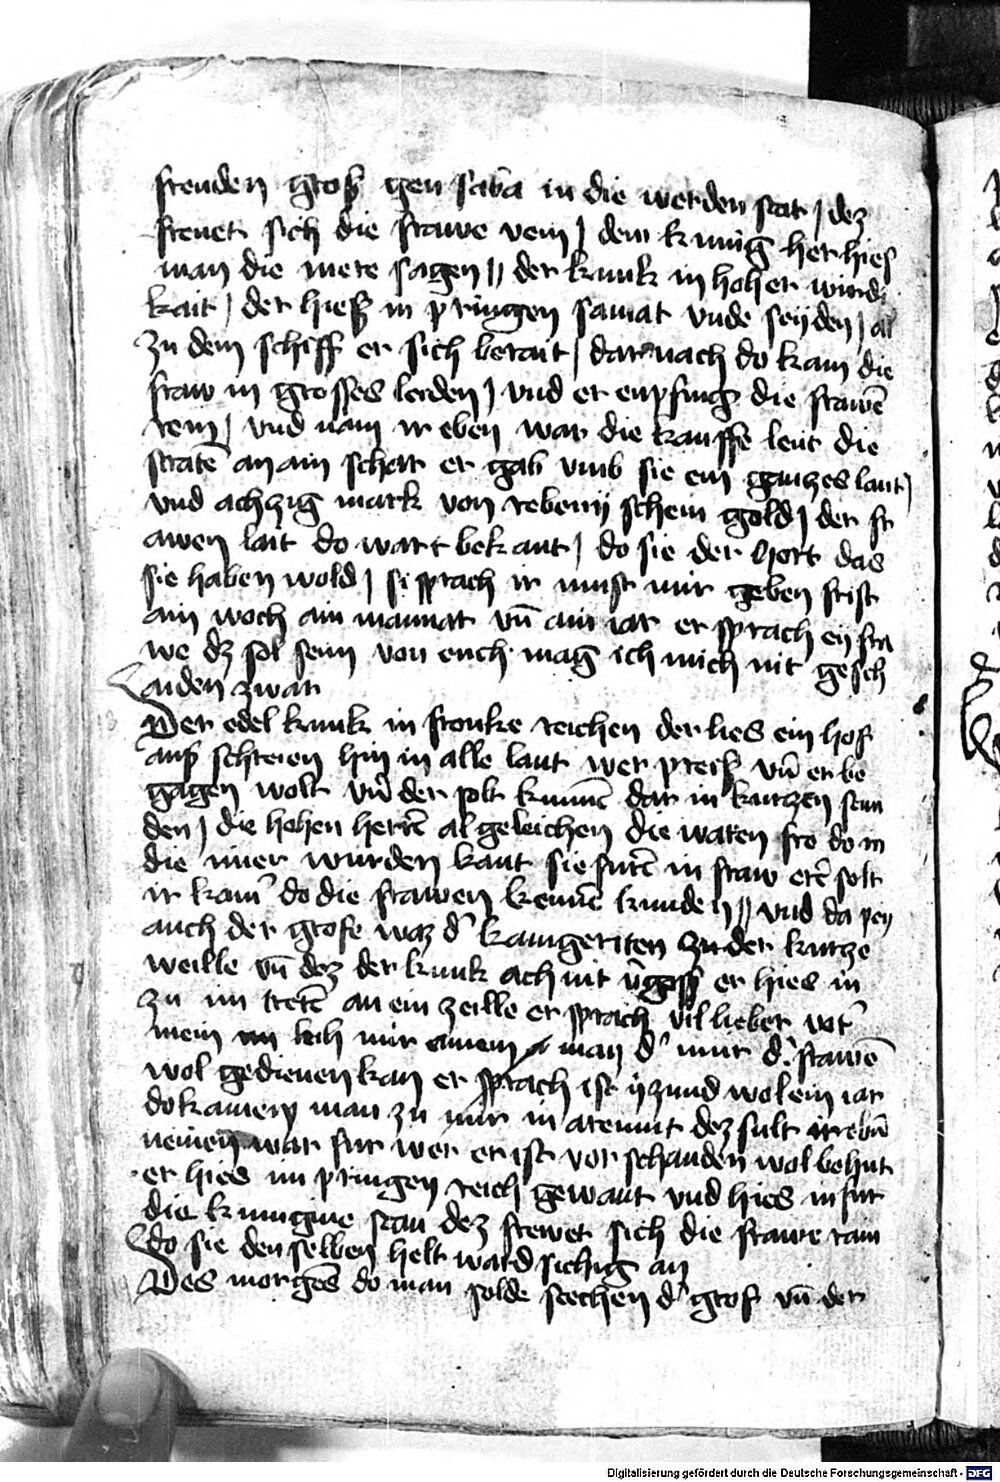 freuden groß gen saba in die werden stat / dez
frewet sich die frawe vein / dem kunig her hies
man die mere sagen // der kunk in hoher wirdi
kait / der hieß in pringen samat vnde seyden / al
zu dem schiff er sich berait / dar nach do kam die
fraw in grosses leiden / vnd er enpfing die frawē
rein / vnd nam ir eben war die kauffe leut die
stratē an ain schar er gab vmb sie ein ganzes lant /
vnd achzig mark von reberry schein gold / der fr
awen lait do wart bekant / do sie der hort das
sie haben wold / si sprach ir must mir geben frist
ain woch ain mannat vn̄ ain iar er sprach ey fra
we dz sol sein von euch mag ich mich nit gesch
aiden zwar
Der edel kunk in franke reichen der lies ein hof
auß schreien hin in alle lant wer preiß vn̄ er be
gagen wolt vn̄ der solt kumē dar in kurtzen stun
den / die hohen herrē al geleichen die waren fro do in
die mer wurden kant sie furē in fraw erē solt
ir kam̄ do die frawen kemē kunden // vnd da pey
auch der grofe waz d' kamgeriten zu der kurtze
weille vn̄ dez der kunk ach nit v̄gaß er hies in
zu im tretē an ein zeille er sprach vil lieber vot'
mein leih mir einem man d' mir d' frawē
wol gedienen kan er sprach ist yzund wol ein iar
do kam eiy man zu mir in aremut dez sult ir ebn̄
nemen war fur wer er ist vor schanden wol behut
er hies im pringen reich gewant vnd hies in fur
die kunigine stan dez frewet sich die frawe rain
do sie den selben helt ward sichtig an
Des morgēs do man solde stechen d' grof vn̄ der
Digitalisierung gefördert durch die Deutsche Forschungsgemeinschaft - DFG